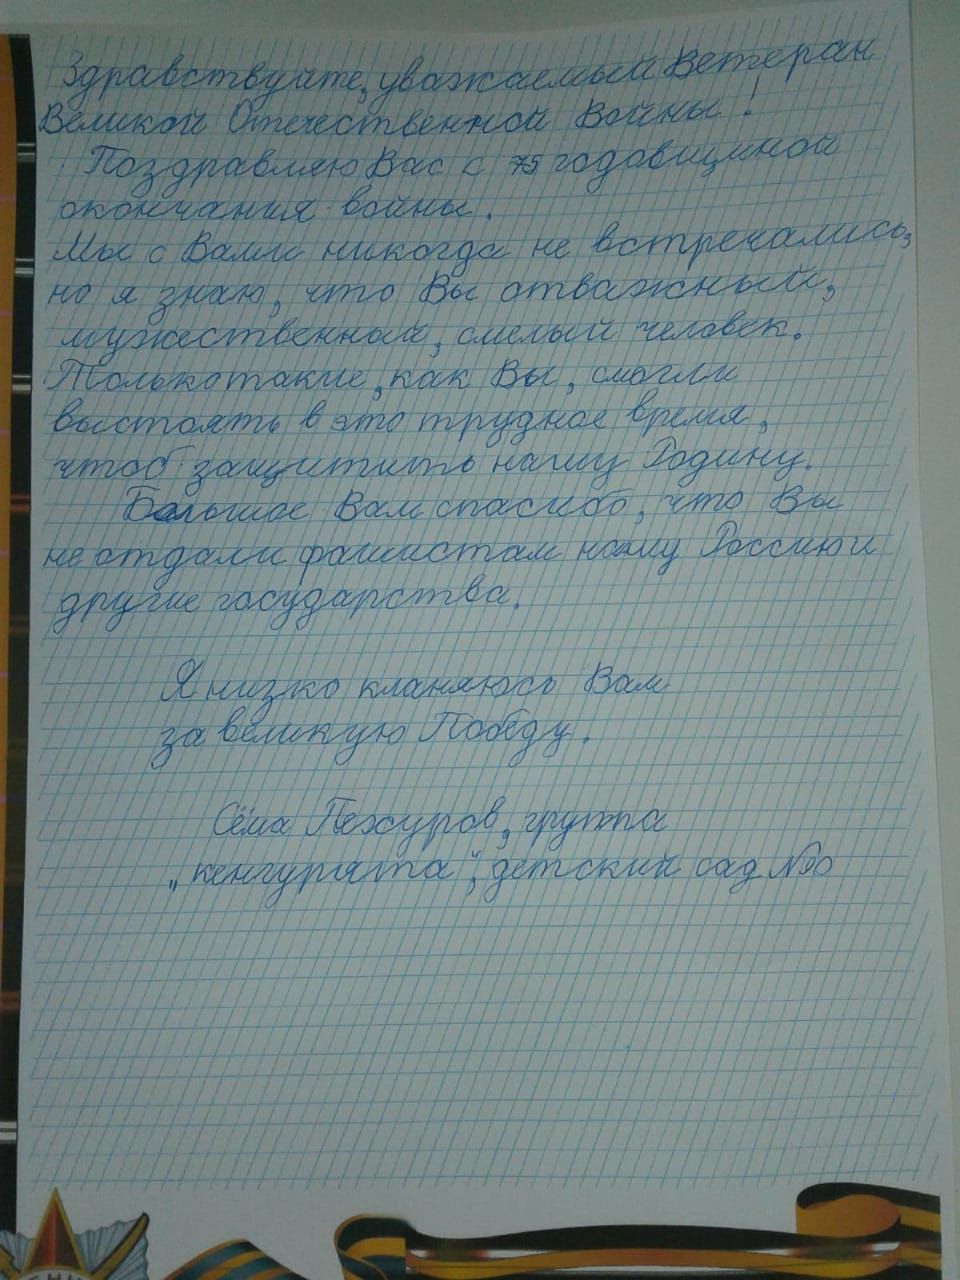 Здравствуйте, уважаемый Ветеран
Великой Отечественной Войны!
Поздравляю Вас с 75 годовщиной
окончания войны.
Мы с Вами никогда не встречались,
но я знаю, что Вы отважный,
мужественный, смелый человек.
Только такие, как Вы, смогли
выстоять в это трудное время,
чтоб защитить нашу Родину.
Большое Вам спасибо, что Вы
не отдали фашистам нашу Россию и
другие государства.
Я низко кланяюсь Вам
за великую Победу.
Сёма Пехуров, группа
„кенгурята“, детский сад